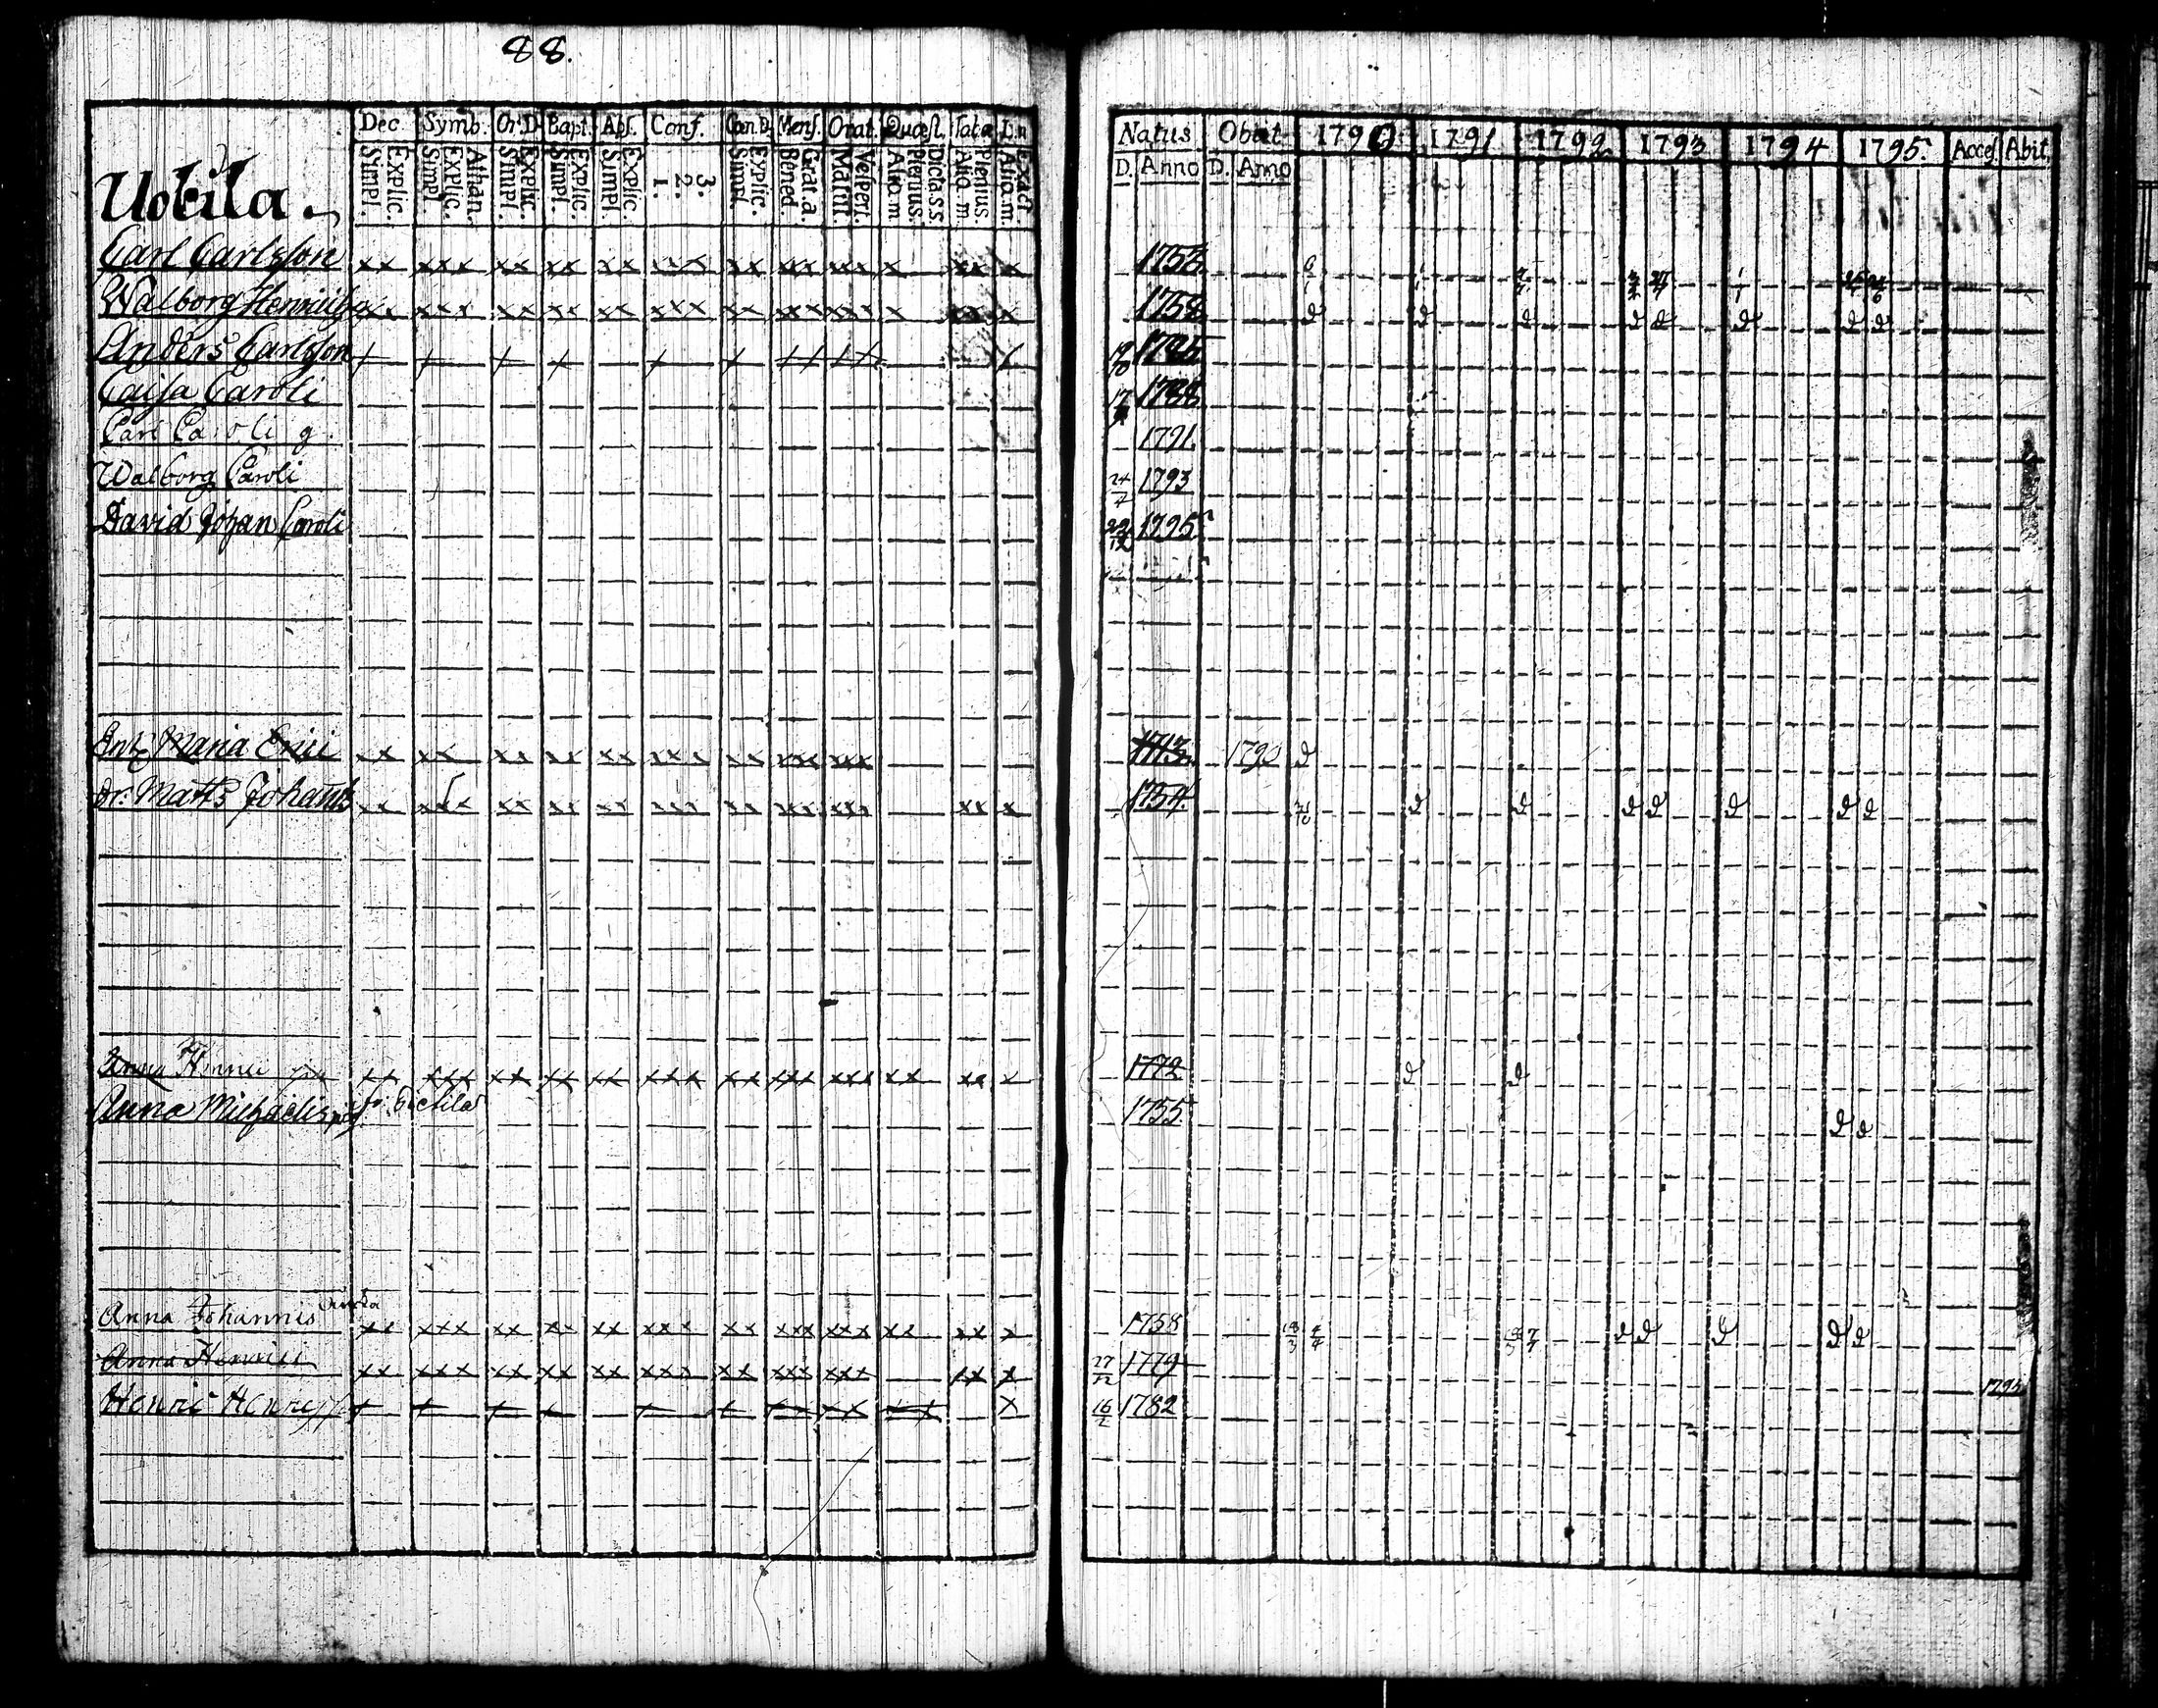 88.
Dec. Symb. Or.D. Bapt. Abs. Conf. Can.D. Mens. Orat. Quæst. Tab.æ
Simpl. Explic. Simpl. Explic. Athan. Simpl. Explic. Simpl. Explic. Simpl. Explic. 1. 2. 3. Simpl. Explic. Bened. Grat.a. Matut. Vespert. Alio.m. Plenius. Dicta.s.s. Alio.m. Plenius. Alio.m. Exact
Natus Obiit 1790. 1791 1792 1793 1794 1795. Acces. Abit.
D. Anno D. Anno
Uotila.
Carl Carlsson xx xxx xx xx xx xxx xx xxx xxx x xx x
Walborg xx xxx xx xx xx xxx xx xxx xxx x xx x 1758 d d d d d d d d
Anders Carlsson
Caisa Caroli 17 1788
Carl Caroli g. 1791
Walborg Caroli 24/7 1793
David Johan Caroli 1795
Enk. Maria Erici xx xx xx xx xx xxx xx xxx xxx 1713 1790 d
Dr. Matts Johans xx xxx xx xx xx xxx xx xxx xxx xx x 1754. d d d d d d d
Anna Henrici pig xx xxx xx xx xx xxx xx xxx xxx xx xx x 1772 d d
Anna Michaelis pig 1755 d d
Anna Johannis Enka xx xxx xx xx xx xxx xx xxx xxx xx xx x 1758 d d d d d
Anna Henrici xx xxx xx xx xx xxx xx xxx xxx xx x 27/12 1779 1795
Henric Henricss 16/2 1782